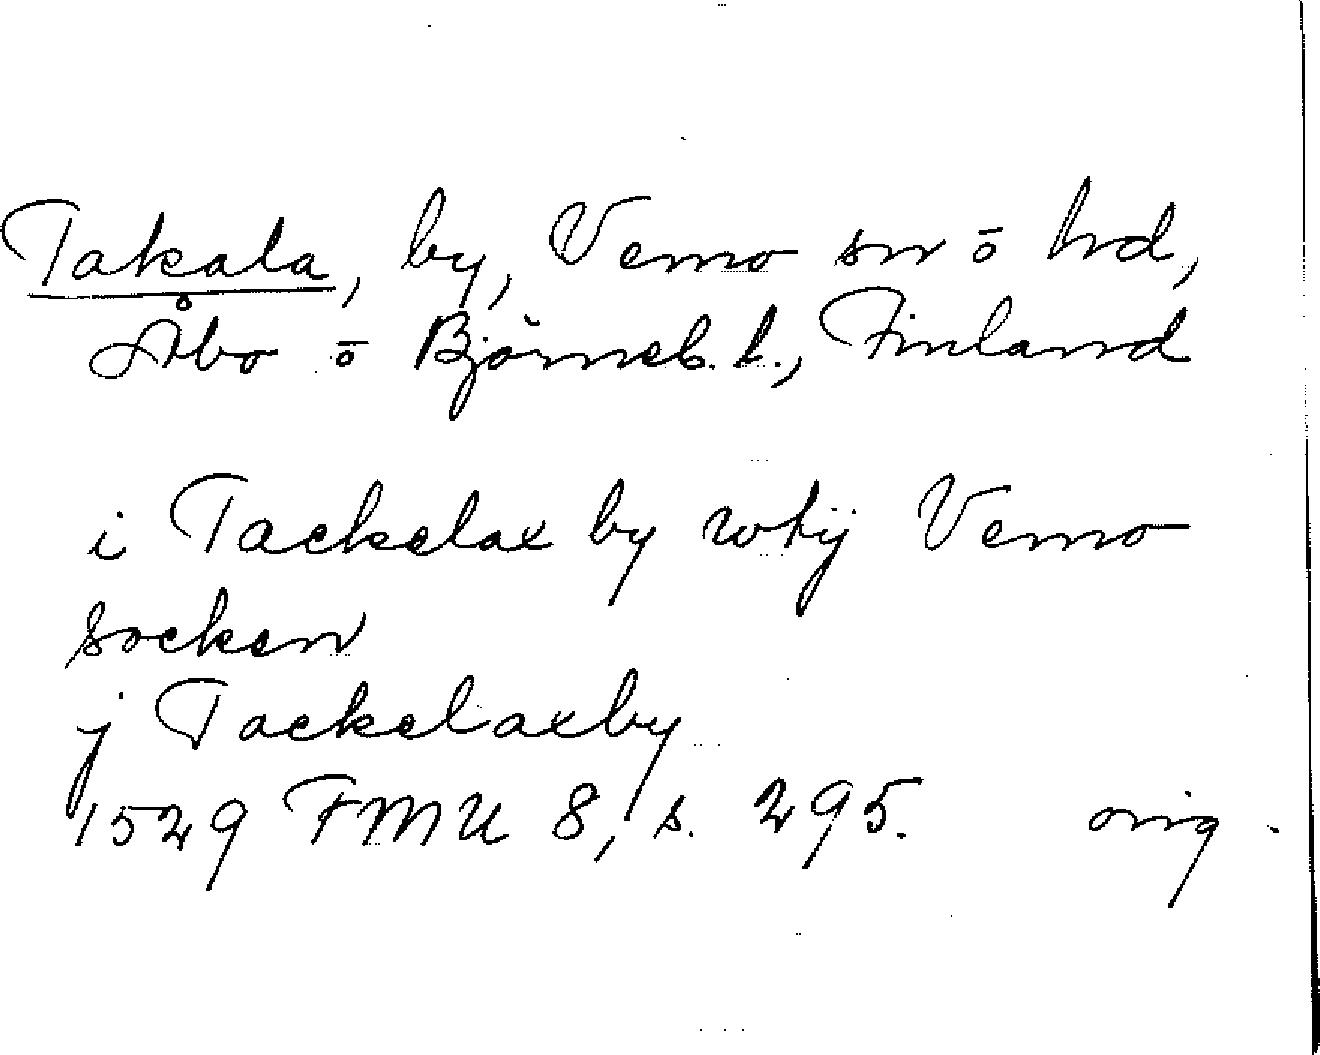 Takala, by, Vemo sn o hd,
Åbo o Björneb. l., Finland
i Tackelax by wtij Vemo
socken
j Tackelaxby
1529 FMU 8, s. 295. orig.